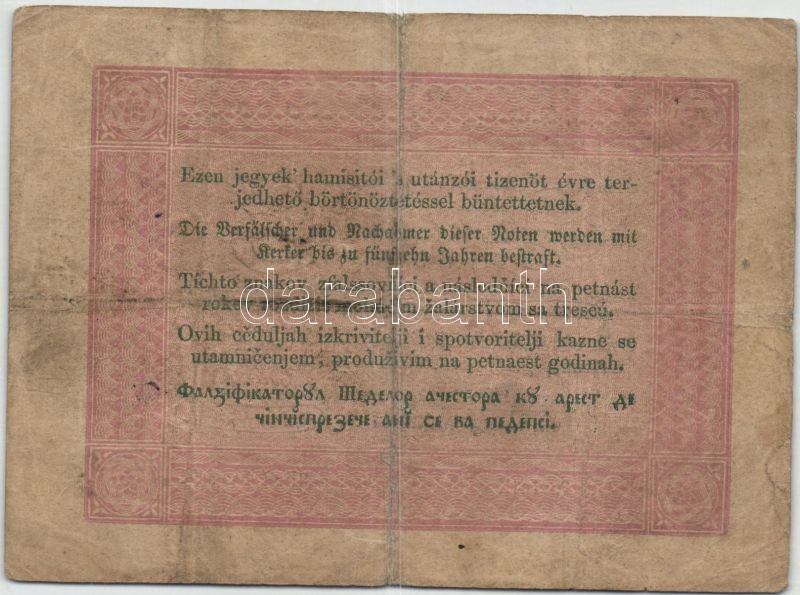 Ezen jegyek' hamisitói 's utánzói tizenöt évre ter-
jedhető börtönöztetéssel büntettetnek.
Die Verfälscher und Nachahmer dieser Noten werden mit
Kerker bis zu fünfzehn Jahren bestraft.
Tíchto znakov a následkári na petnást
rokov žalárstvom sa trescú.
darabanth
Ovih cěduljah izkrivitelji i spotvoritelji kazne se
utamničenjem, produživim na petnaest godinah.
Фалꙁіфікаторꙋл Шеделор ачестора кꙋ арест де
чінчіспрезече ані се ва педепсі.